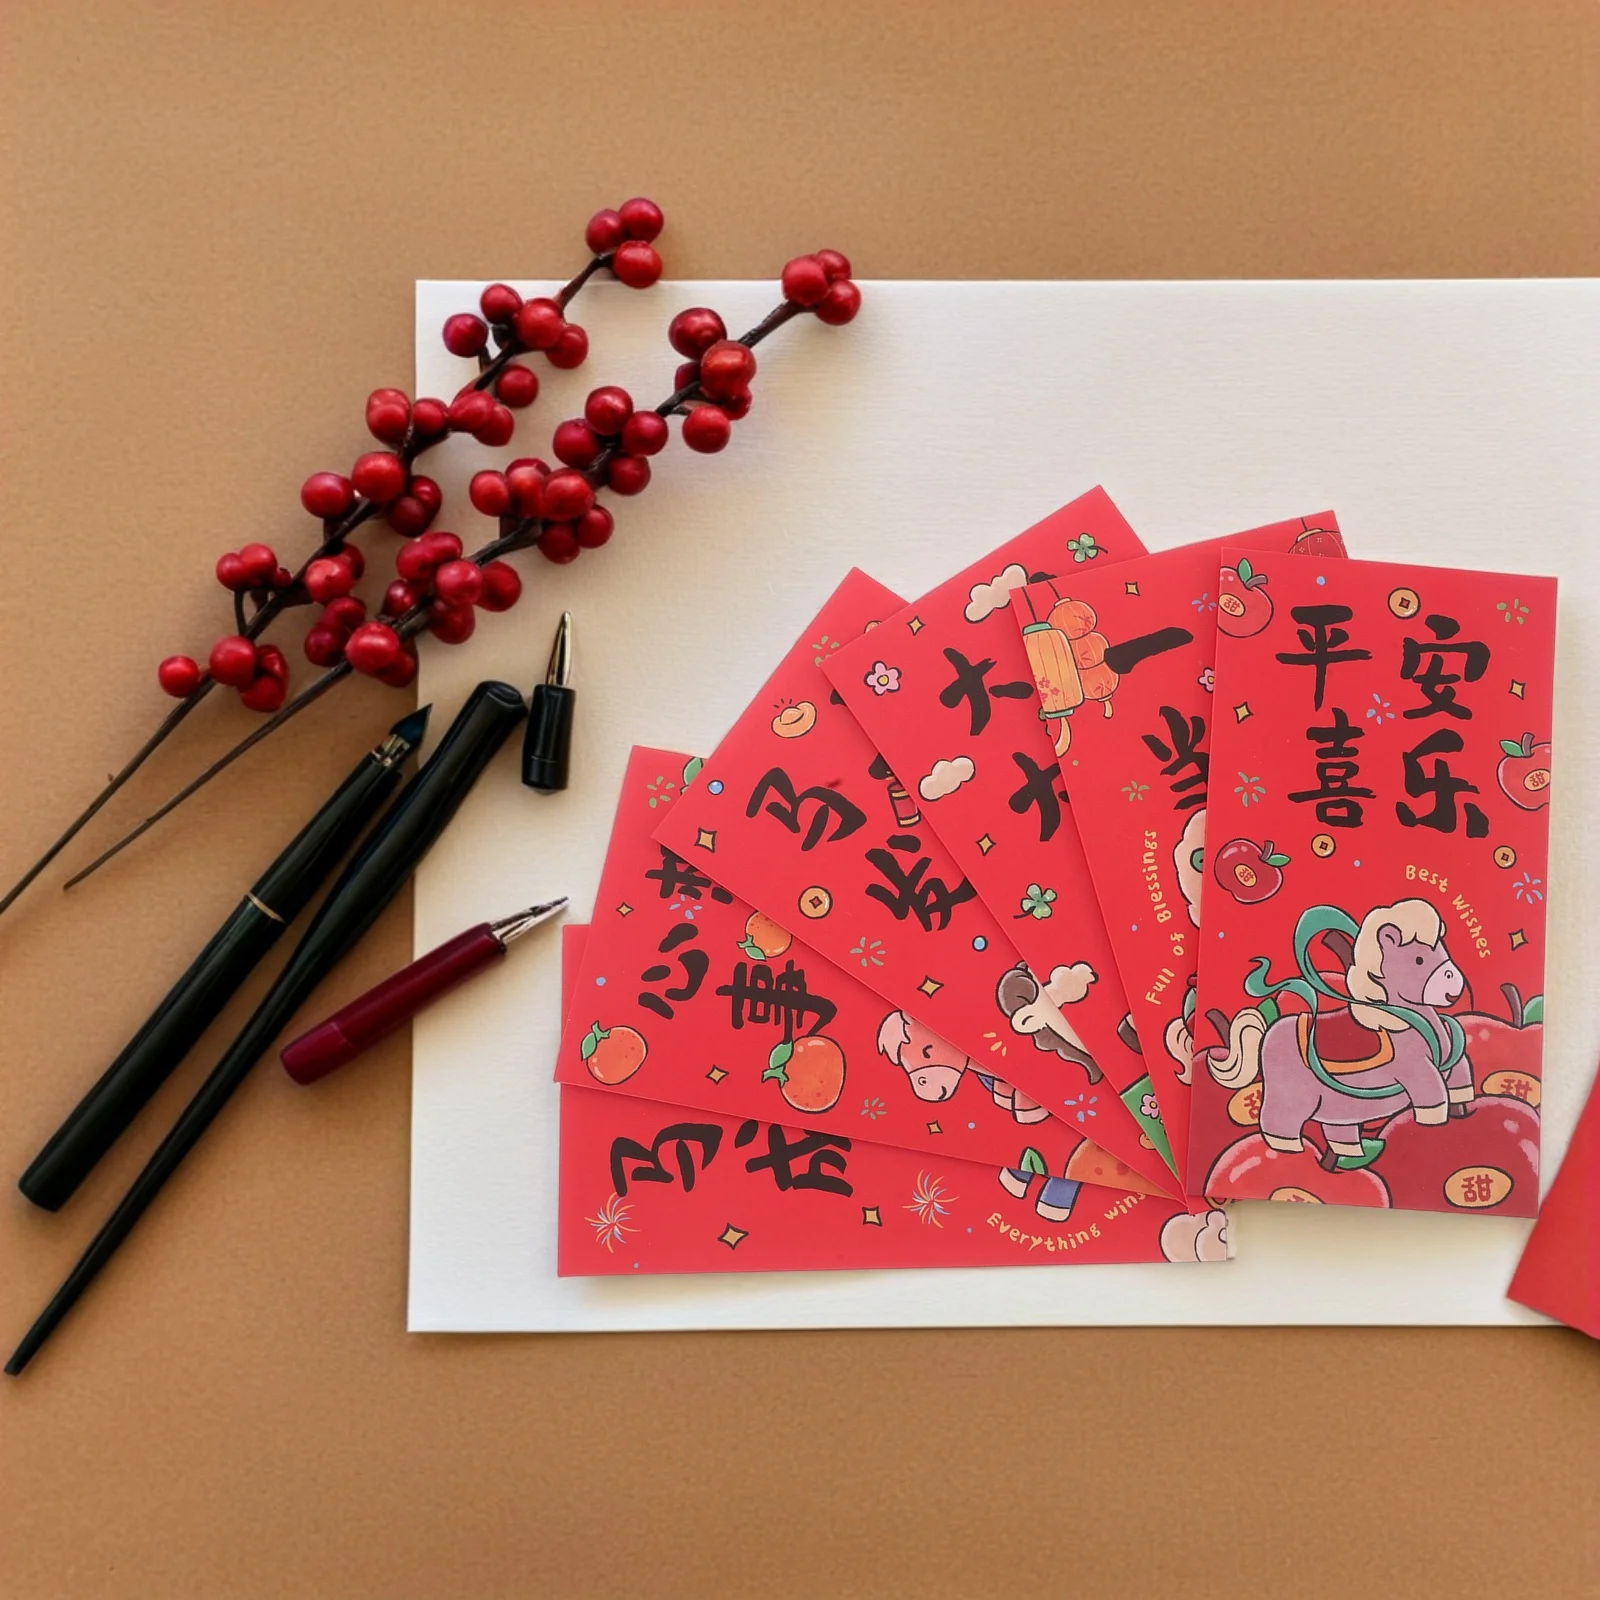 平安
喜乐
Best Wishes
甜
甜
甜
甜
甜
一
当
Full of Blessings
大
大
马
发
心想
事
马
成
Everything wins